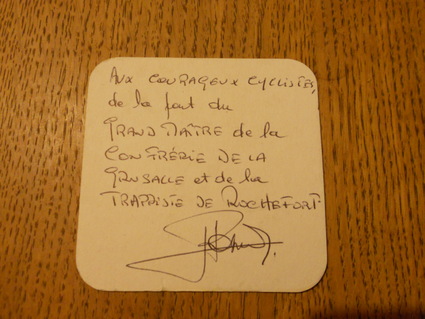 Aux courageux cyclistes,
de la part du
Grand Maître de la
Confrérie de la
Grusalle et de la
Trappiste de Rochefort